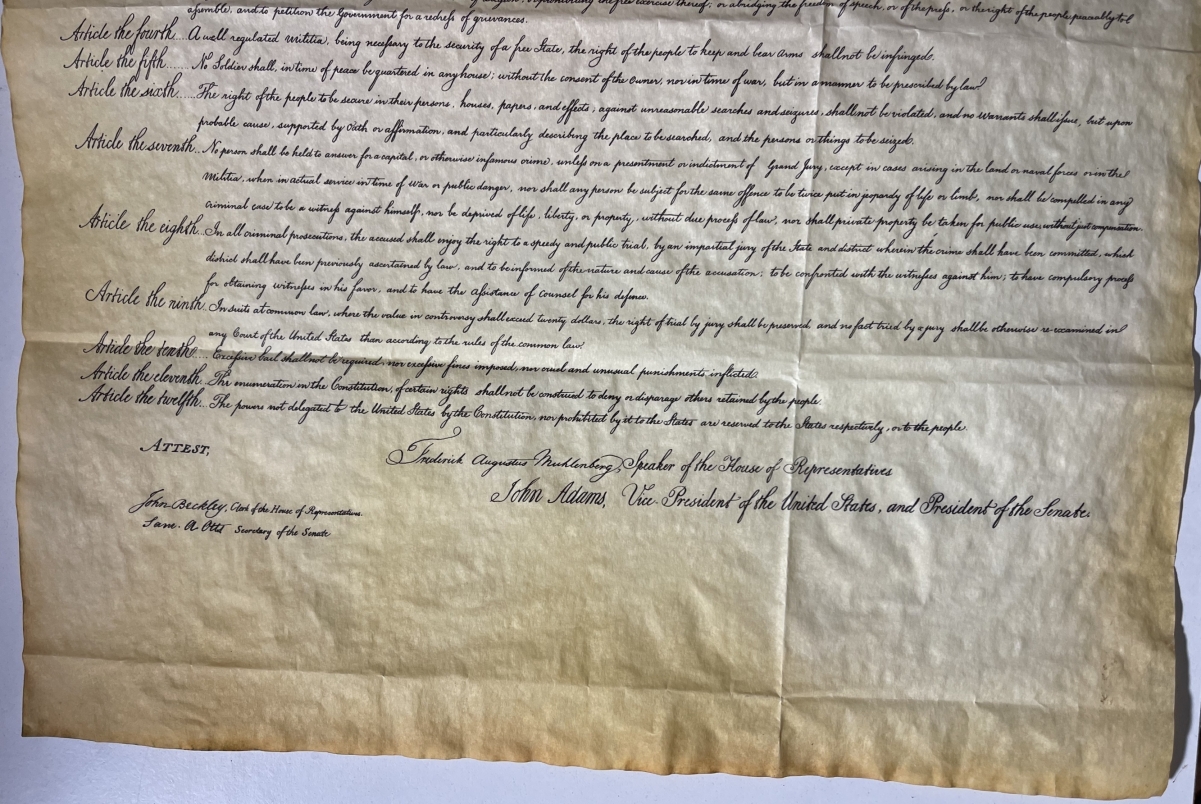 assemble, and to petition the Government for a redress of grievances.
Article the fourth... A well regulated Militia, being necessary to the security of a free State, the right of the people to keep and bear Arms shall not be infringed.
Article the fifth...... No Soldier shall, in time of peace be quartered in any house; without the consent of the Owner, nor in time of war, but in a manner to be prescribed by law
Article the sixth...... The right of the people to be secure in their persons, houses, papers, and effects, against unreasonable searches and seizures, shall not be violated, and no Warrants shall issue, but upon
probable cause, supported by Oath or affirmation, and particularly describing the place to be searched, and the persons or things to be seized.
Article the seventh... No person shall be held to answer for a capital, or otherwise infamous crime, unless on a presentment or indictment of Grand Jury, except in cases arising in the land or naval forces or in the
Militia, when in actual service in time of War or public danger, nor shall any person be subject for the same offence to be twice put in jeopardy of life or limb, nor shall be compelled in any
criminal case to be a witness against himself, nor be deprived of life, liberty, or property, without due process of law, nor shall private property be taken for public use, without just compensation.
Article the eighth... In all criminal prosecutions, the accused shall enjoy the right to a speedy and public trial, by an impartial jury of the State and district wherein the crime shall have been committed, which
district shall have been previously ascertained by law, and to be informed of the nature and cause of the accusation; to be confronted with the witnesses against him; to have compulsory process
for obtaining witnesses in his favor, and to have the assistance of Counsel for his defence.
Article the ninth... In suits at common law, where the value in controversy shall exceed twenty dollars, the right of trial by jury shall be preserved, and no fact tried by a jury shall be otherwise re-examined in
any Court of the United States than according to the rules of the common law.
Article the tenth.... Excessive bail shall not be required, nor excessive fines imposed, nor cruel and unusual punishments inflicted.
Article the eleventh. The enumeration in the Constitution, of certain rights shall not be construed to deny or disparage others retained by the people.
Article the twelfth... The powers not delegated to the United States by the Constitution, nor prohibited by it to the States are reserved to the States respectively, or to the people.
ATTEST,
Frederick Augustus Muhlenberg, Speaker of the House of Representatives
John Adams, Vice President of the United States, and President of the Senate.
John Beckley, Clerk of the House of Representatives.
Sam. A Otis Secretary of the Senate